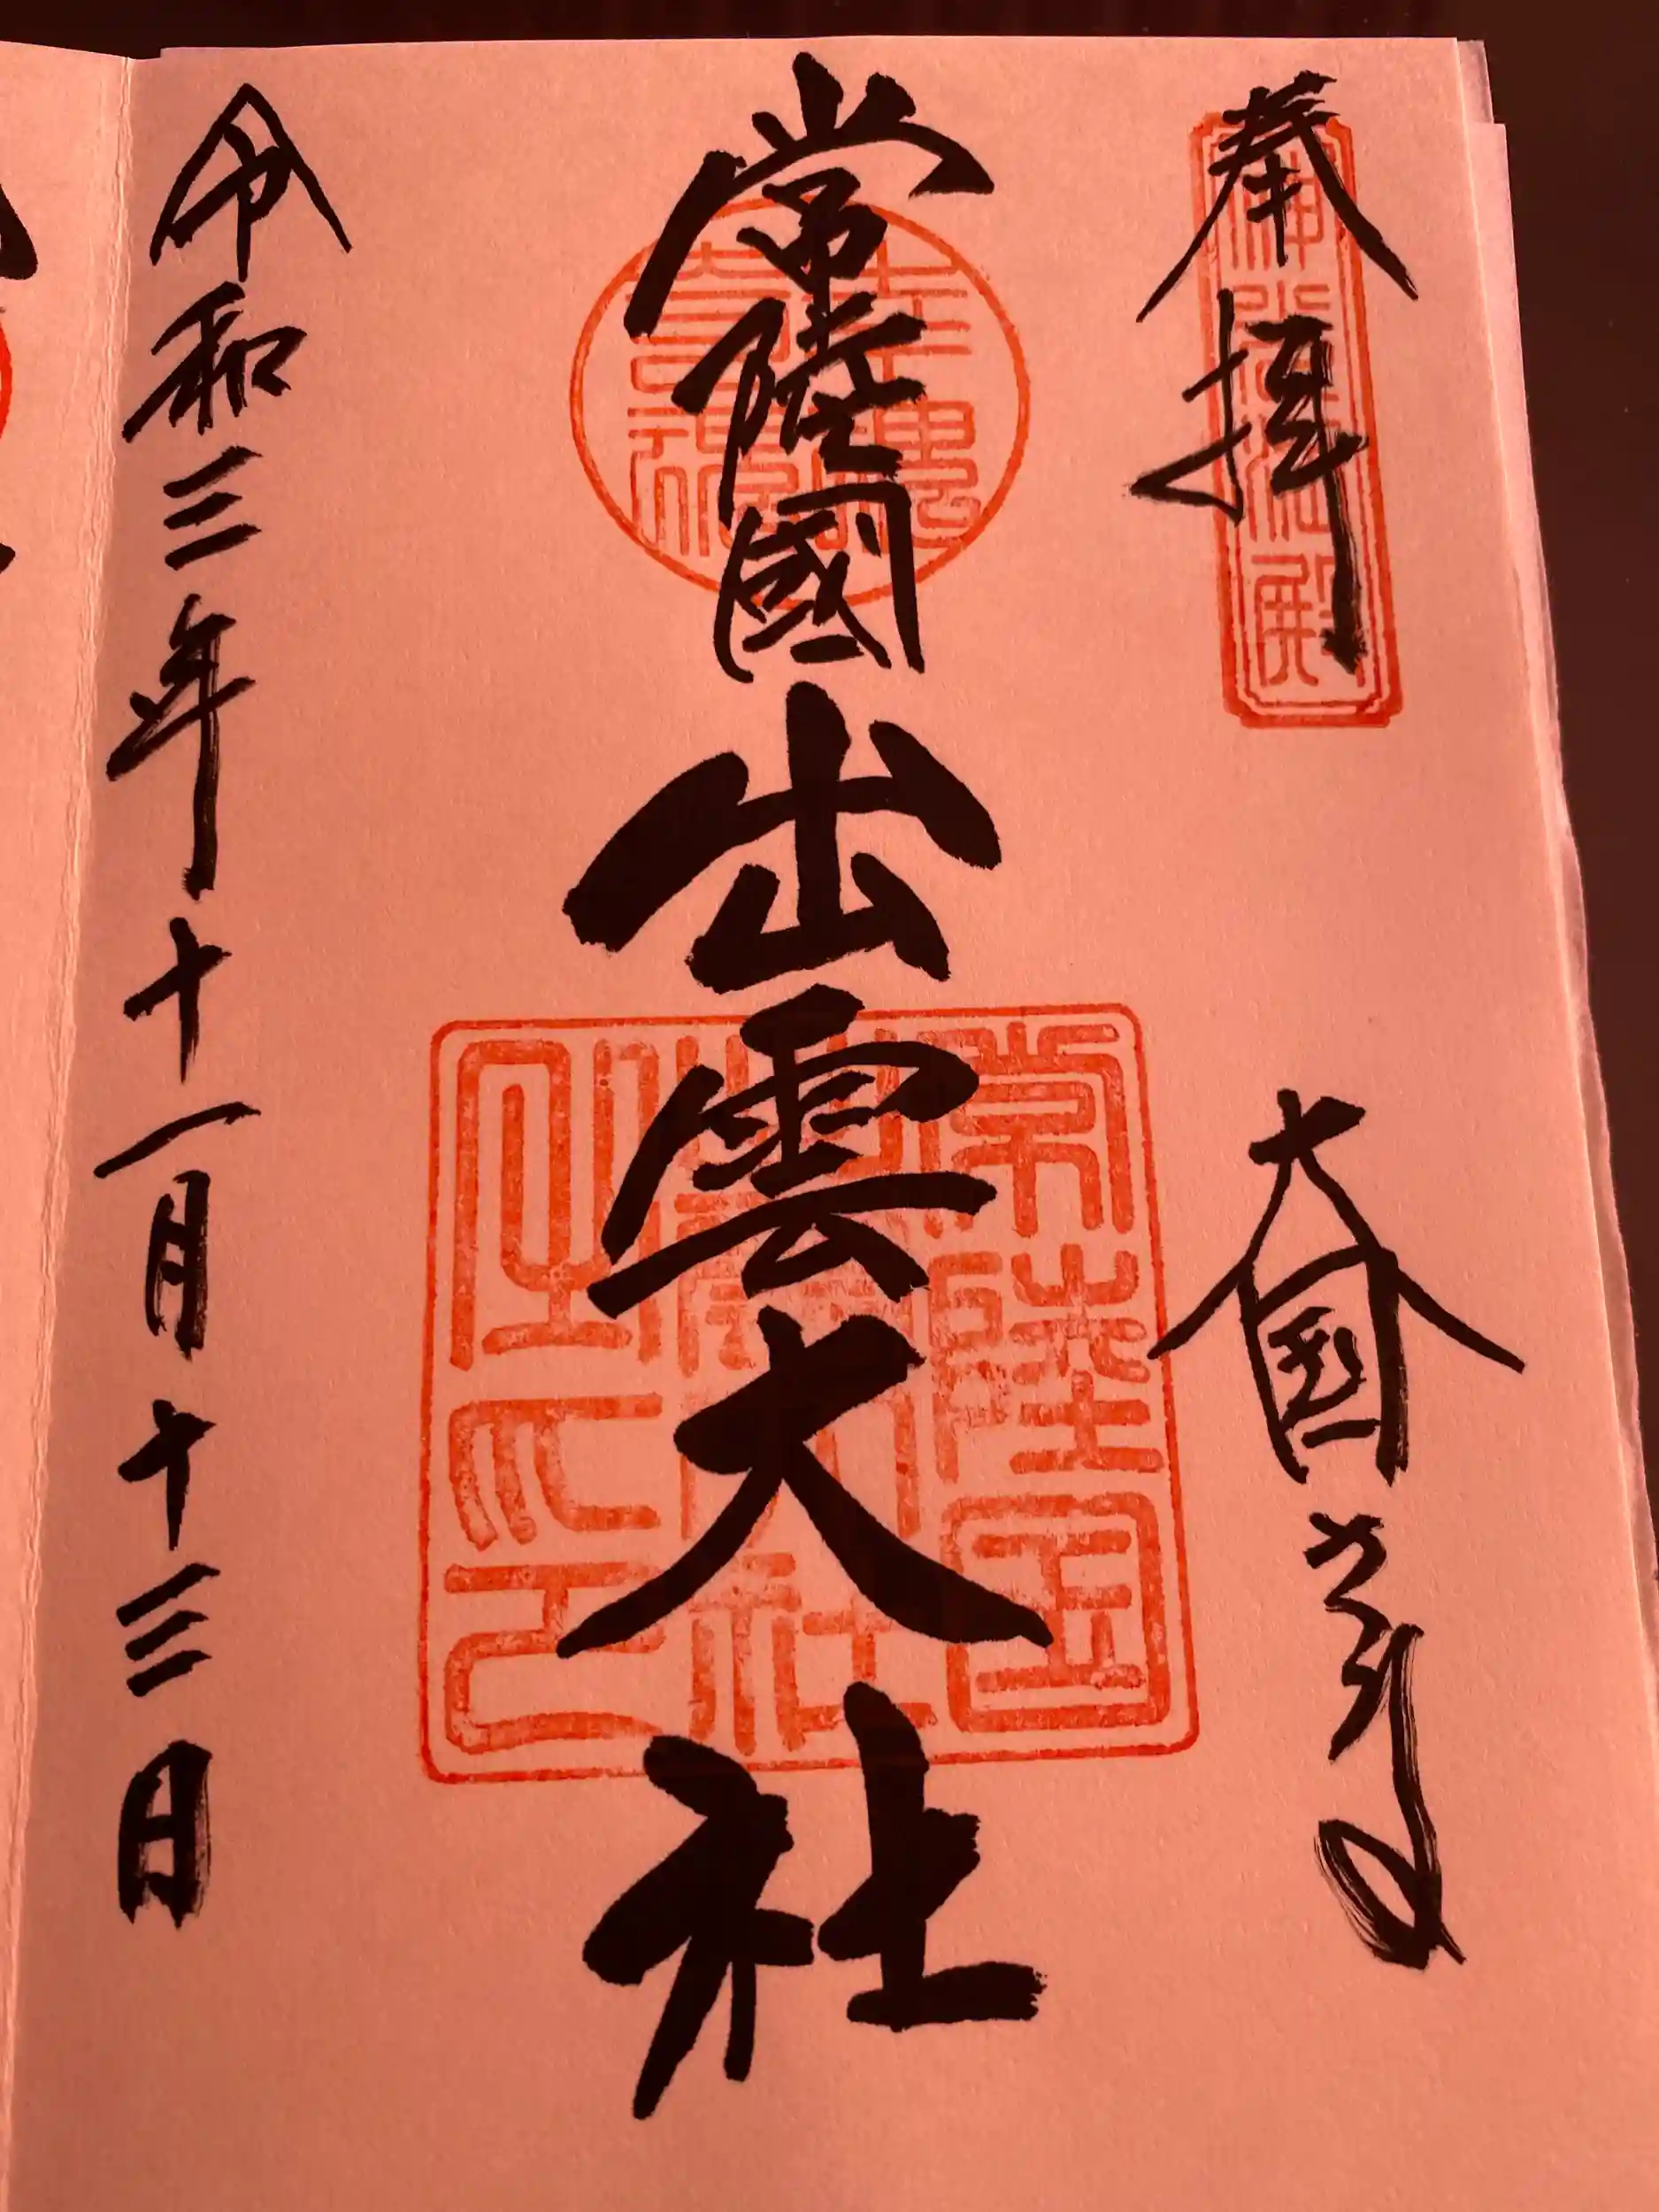 奉拝
大国さま
常陸國
出雲大社
常陸国
出雲大社
之印
令和三年十一月十三日